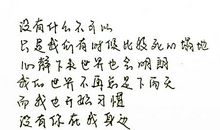 没有什么不可以
只是我们有时候比较死心塌地
心静下来世界也会明朗
我的世界不再总是下雨天
而我也开始习惯
没有你在我身边